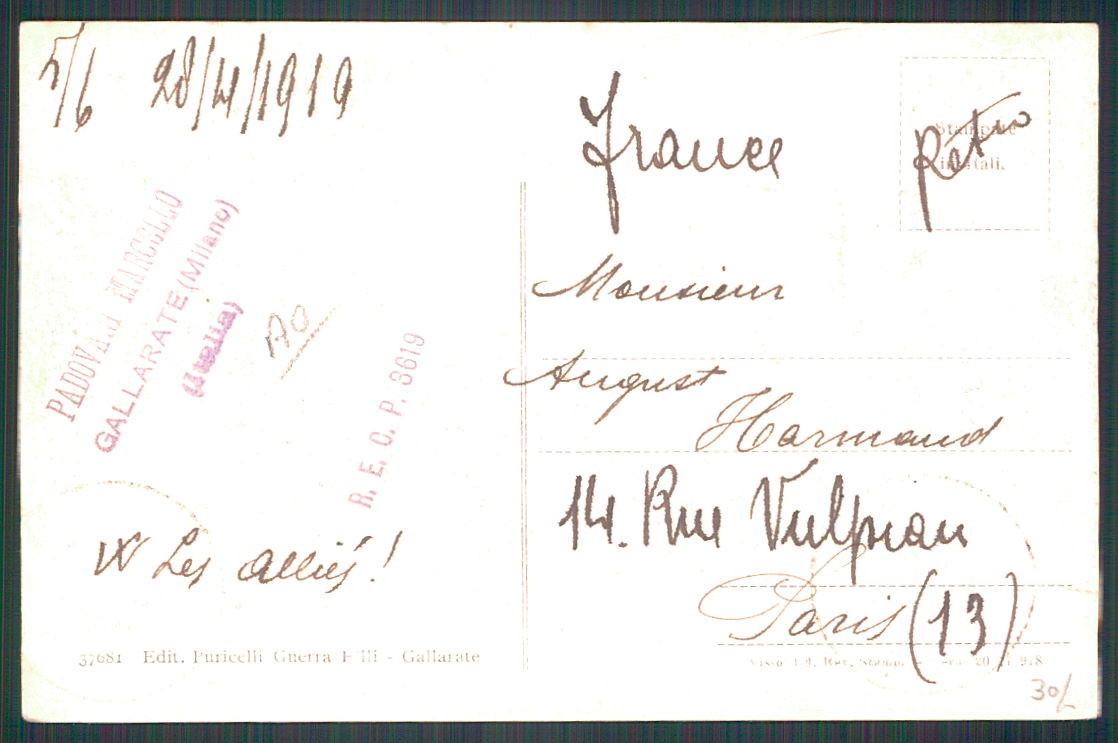 5/6 28/4/1919
PADOVANI MARCELLO
GALLARATE (Milano)
(Italia)
AO
R. E. C. P. 3619
W Les alliés!
37681 Edit. Puricelli Guerra F.lli - Gallarate
France
Stampe
Monsieur
August
Harmand
14. Rue Vulpian
Paris (13)
30/